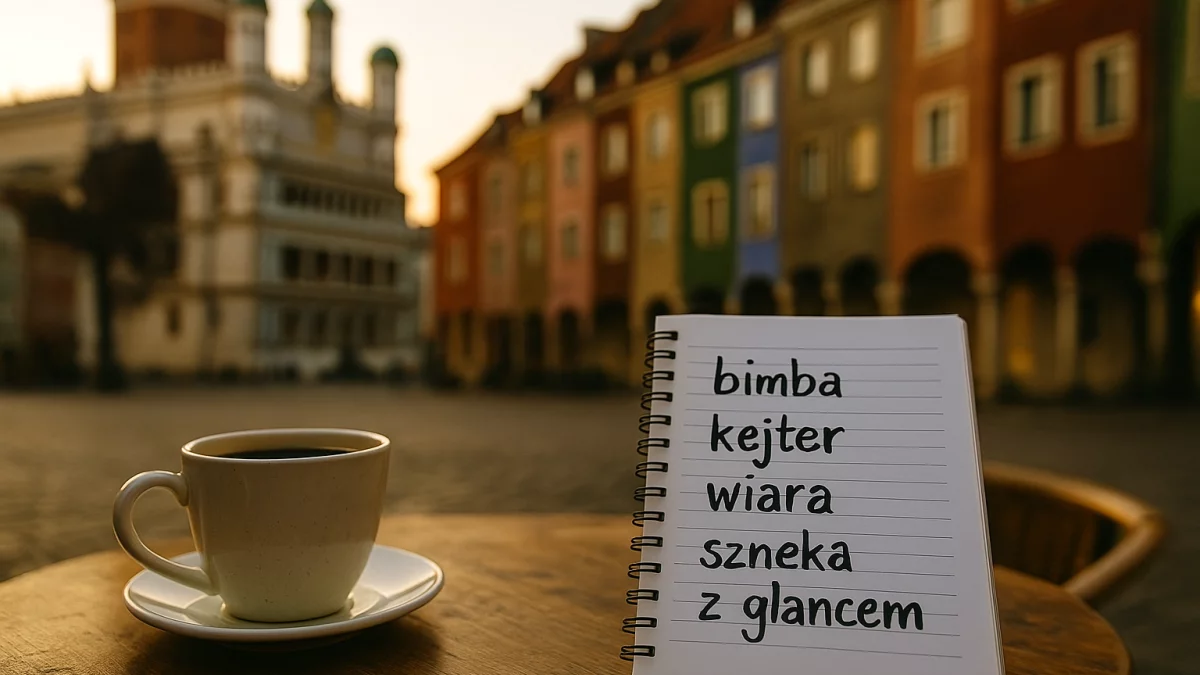 bimba
kejter
wiara
szneka
z glancem